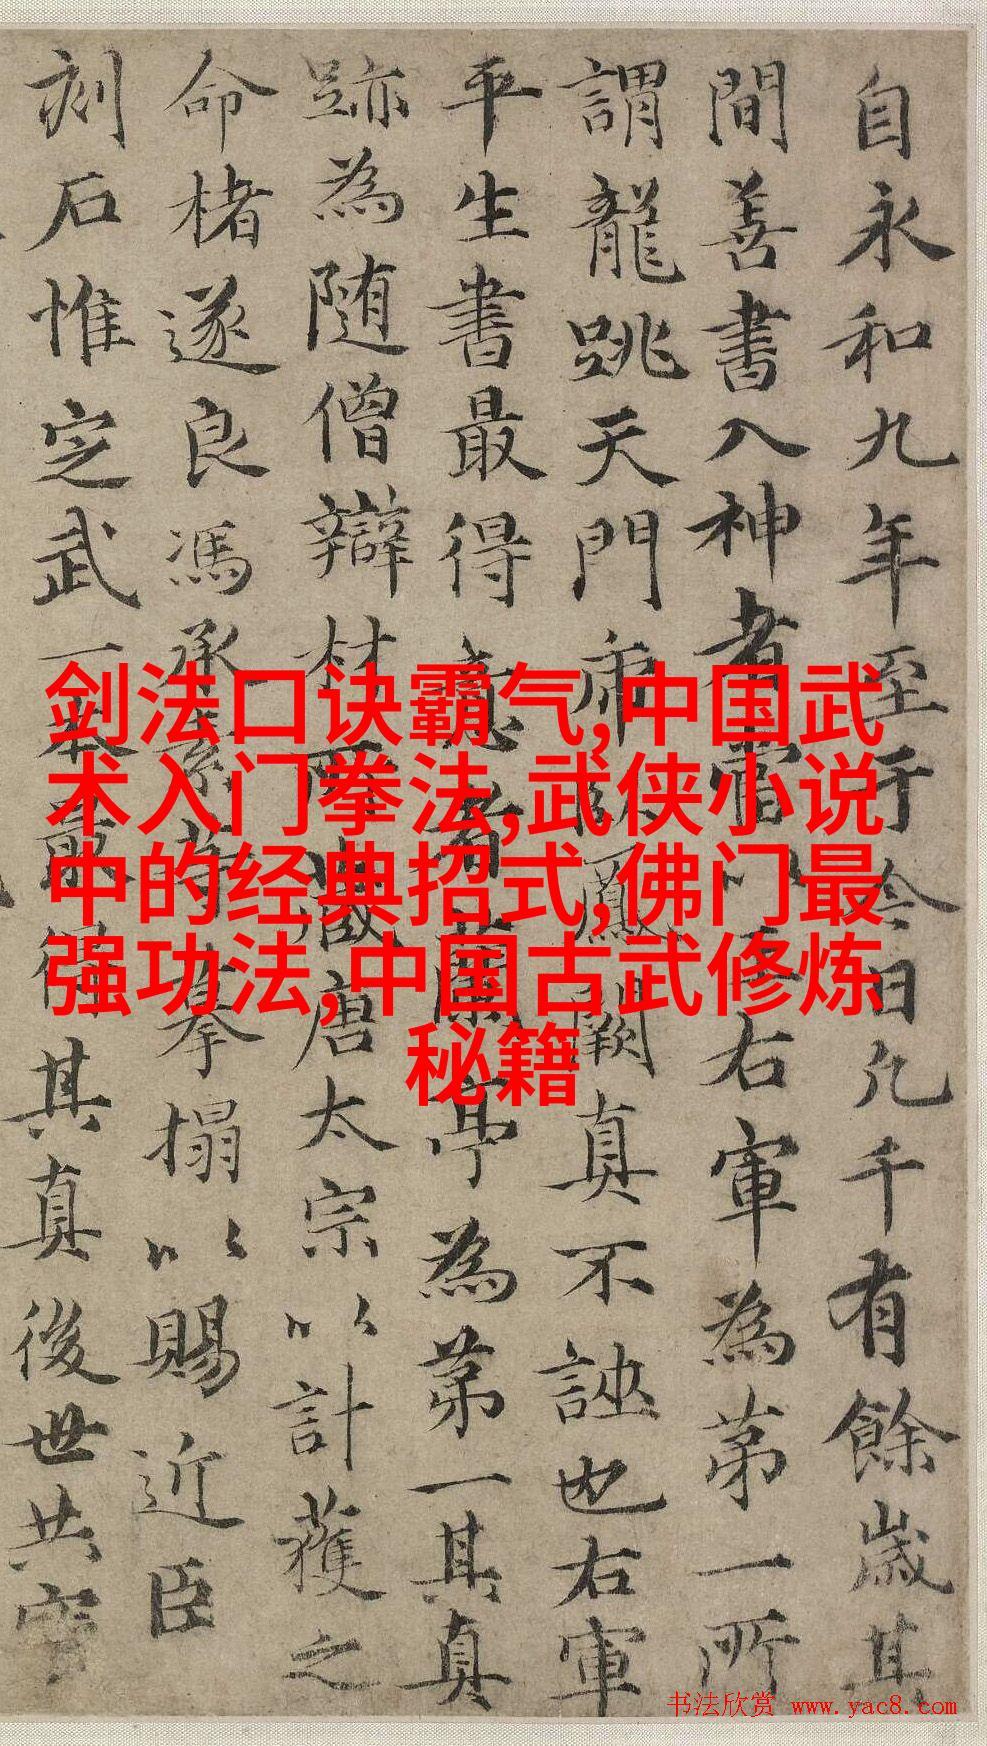 自永和九年至于今日凡千有餘歲其
間善書入神者當以王右軍為第一所
謂龍跳天門虎臥鳳闕真不誣也右軍
平生書最得意者蘭亭為第一其真
跡為随僧辯材所藏唐太宗以計獲之
命楮遂良馮承素等摹搨以賜近臣
刻石惟定武一本最得其真後世共寶
剑法口诀霸气,中国武
术入门拳法,武侠小说
中的经典招式,佛门最
强功法,中国古武修炼
秘籍
书法欣赏 www.yac8.com